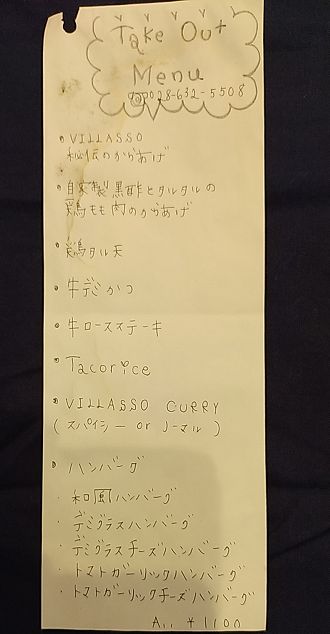 Take Out
Menu
028-632-5508
• VILLASSO
秘伝のからあげ
• 自家製黒酢とタルタルの
鶏もも肉のからあげ
• 鶏タル天
• 牛デミかつ
• 牛ロースステーキ
• Tacorice
• VILLASSO CURRY
(スパイシー or ノーマル)
• ハンバーグ
・和風ハンバーグ
・デミグラスハンバーグ
・デミグラスチーズハンバーグ
・トマトガーリックハンバーグ
・トマトガーリックチーズハンバーグ
All ¥1100